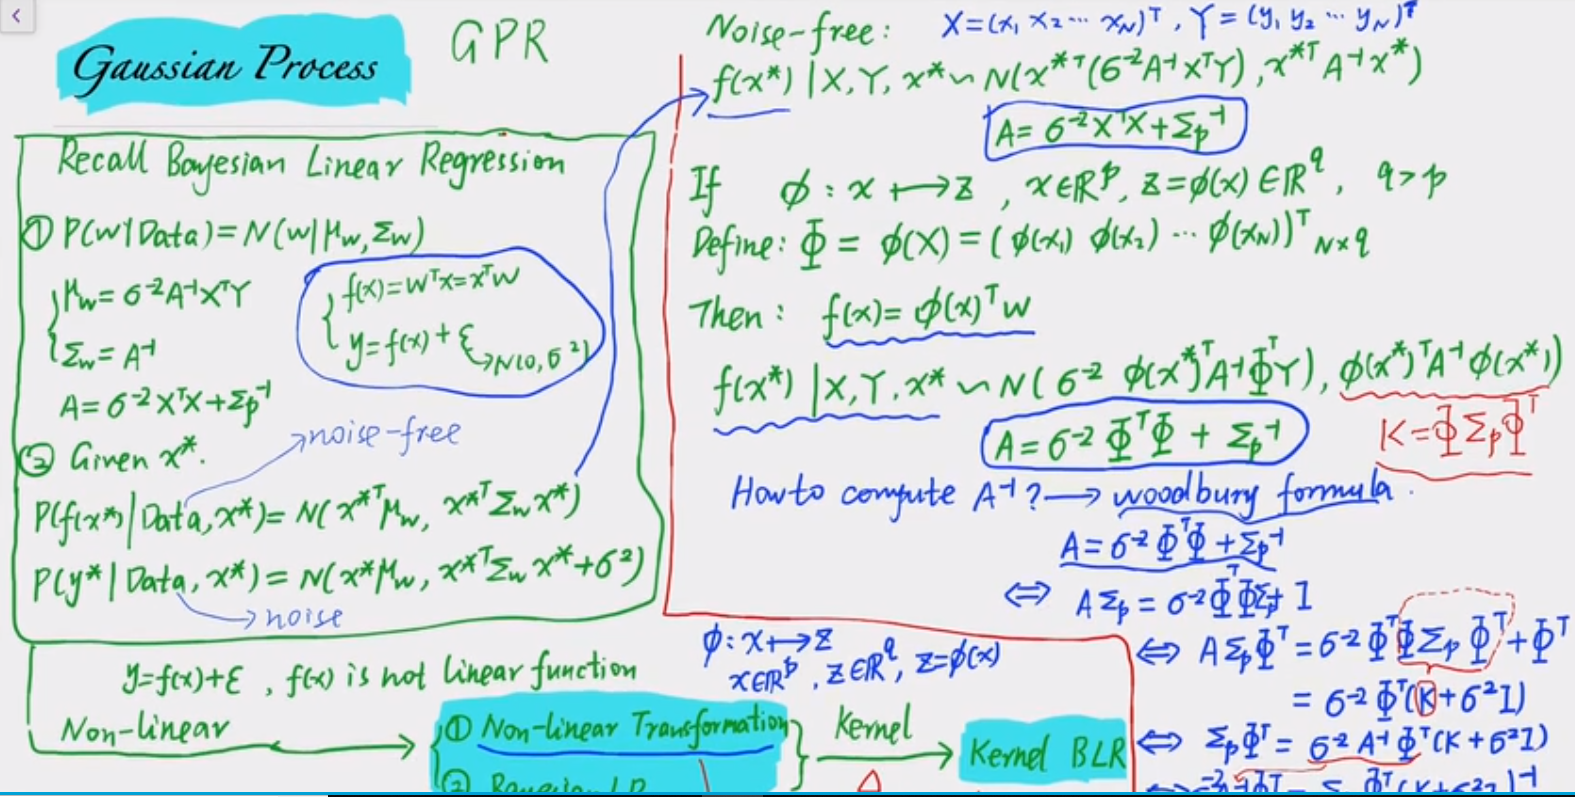 Gaussian Process
GPR
Recall Bayesian Linear Regression
① P(w|Data)=N(w|μw,Σw)
μw=σ⁻²A⁻¹XᵀY
Σw=A⁻¹
A=σ⁻²XᵀX+Σp⁻¹
f(x)=wᵀx=xᵀw
y=f(x)+ε
→N(0,σ²)
② Given x*.
→noise-free
P(f(x*)|Data,x*)=N(x*ᵀμw, x*ᵀΣwx*)
P(y*|Data,x*)=N(x*μw, x*ᵀΣwx*+σ²)
→noise
y=f(x)+ε, f(x) is not linear function
Non-linear
① Non-linear Transformation
② Bayesian LR
φ: x↦z
x∈ℝᵖ, z∈ℝ^q, z=φ(x)
Kernel
Kernel BLR
Noise-free: X=(x₁ x₂ ⋯ x_N)ᵀ, Y=(y₁ y₂ ⋯ y_N)ᵀ
f(x*)|X,Y,x*∼N(x*ᵀ(σ⁻²A⁻¹XᵀY), x*ᵀA⁻¹x*)
A=σ⁻²XᵀX+Σp⁻¹
If φ: x↦z, x∈ℝᵖ, z=φ(x)∈ℝ^q, q>p
Define: Φ=φ(X)=(φ(x₁) φ(x₂) ⋯ φ(x_N))ᵀ N×q
Then: f(x)=φ(x)ᵀw
f(x*)|X,Y,x*∼N(σ⁻²φ(x*)ᵀA⁻¹ΦᵀY), φ(x*)ᵀA⁻¹φ(x*))
A=σ⁻²ΦᵀΦ+Σp⁻¹
K=ΦΣpΦᵀ
How to compute A⁻¹?→woodbury formula.
A=σ⁻²ΦᵀΦ+Σp⁻¹
⇔ AΣp=σ⁻²ΦᵀΦΣp+I
⇔ AΣpΦᵀ=σ⁻²ΦᵀΦΣpΦᵀ+Φᵀ
=σ⁻²Φᵀ(K+σ²I)
⇔ ΣpΦᵀ=σ⁻²A⁻¹Φᵀ(K+σ²I)